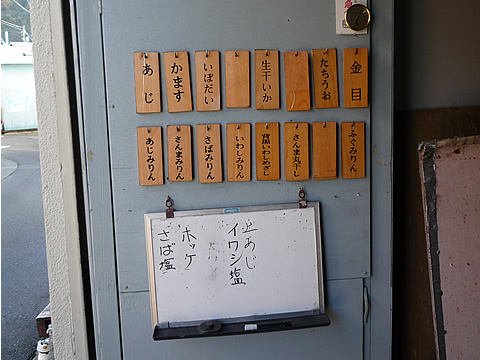 金目
たちうお
生干いか
いぼだい
かます
あじ
ふぐみりん
さんま丸干し
背黒いわしめざし
いわしみりん
さばみりん
さんまみりん
あじみりん
あじ
イワシ塩
ホッケ
さば塩